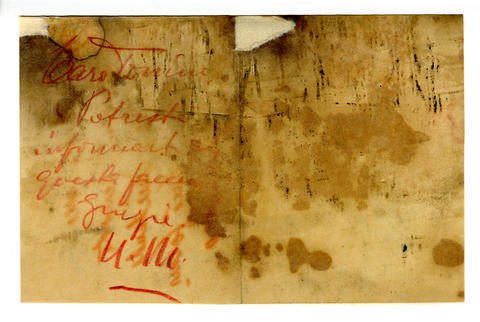 Caro Tonino,
Potresti
informarti su
queste faccende
Grazie
U.M.